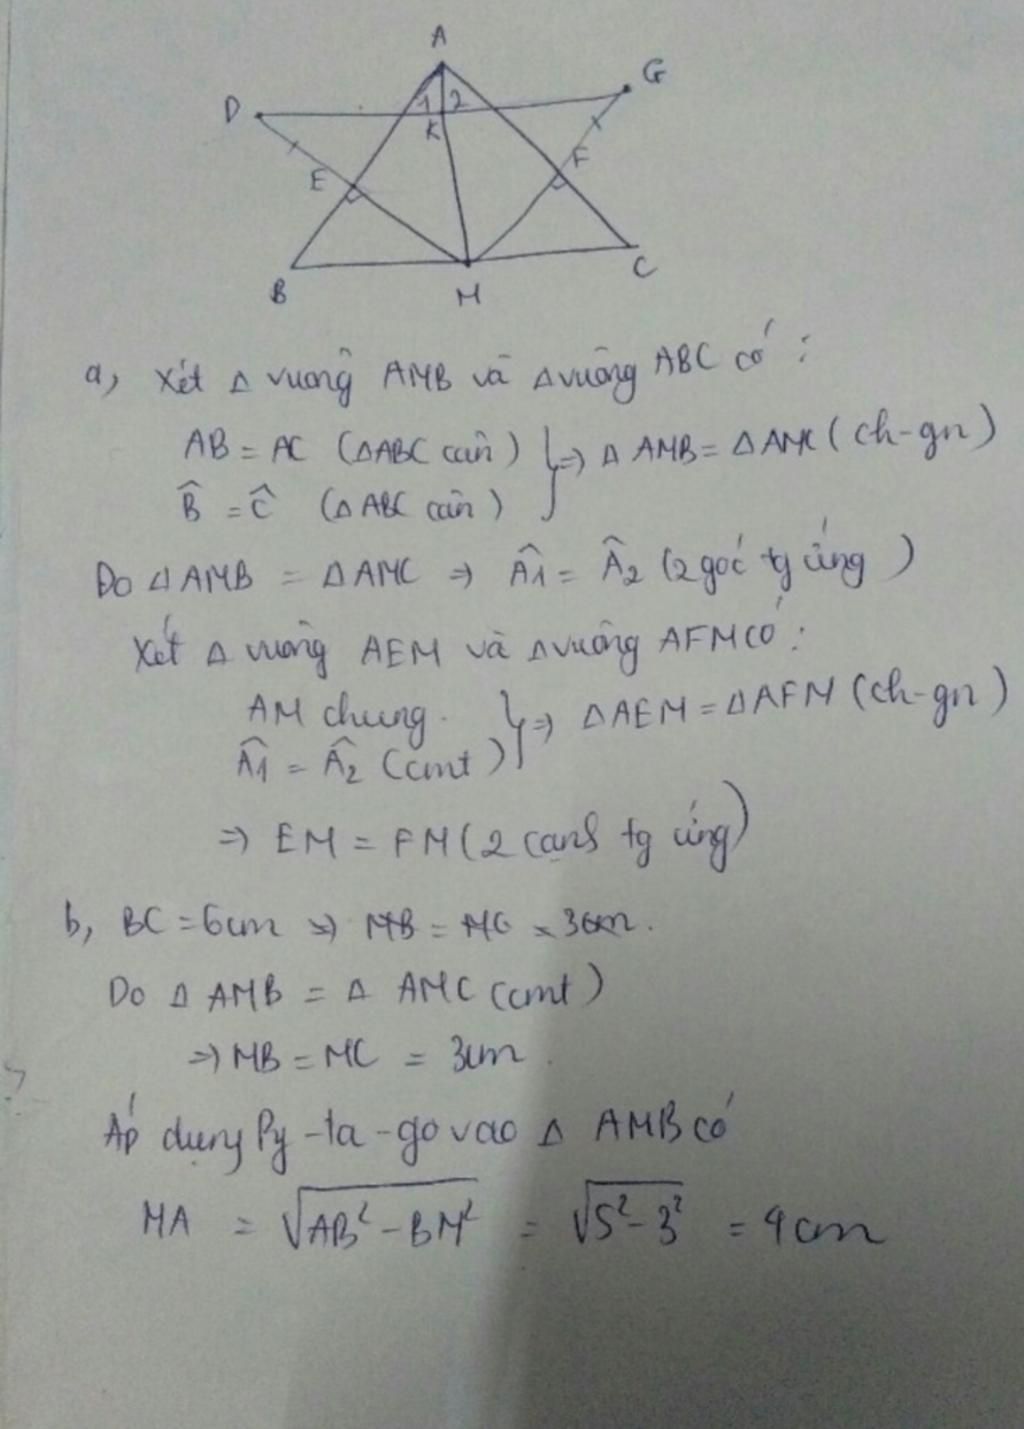 A
D
G
1 2
K
E
F
B
M
C
a, Xét Δ vuông AMB và Δ vuông ABC có :
AB = AC (ΔABC cân) } => Δ AMB = ΔAMC (ch-gn)
B̂ = Ĉ (ΔABC cân)
Do ΔAMB = ΔAMC => Â1 = Â2 (2 góc tg ứng)
Xét Δ vuông AEM và Δ vuông AFM có :
AM chung. } => ΔAEM = ΔAFM (ch-gn)
Â1 = Â2 (cmt)
=> EM = FM (2 cạnh tg ứng)
b, BC = 6cm => MB = MC = 3cm.
Do Δ AMB = Δ AMC (cmt)
=> MB = MC = 3cm.
Áp dụng Py-ta-go vao Δ AMB có
MA = √AB² - BM² = √5² - 3² = 4cm